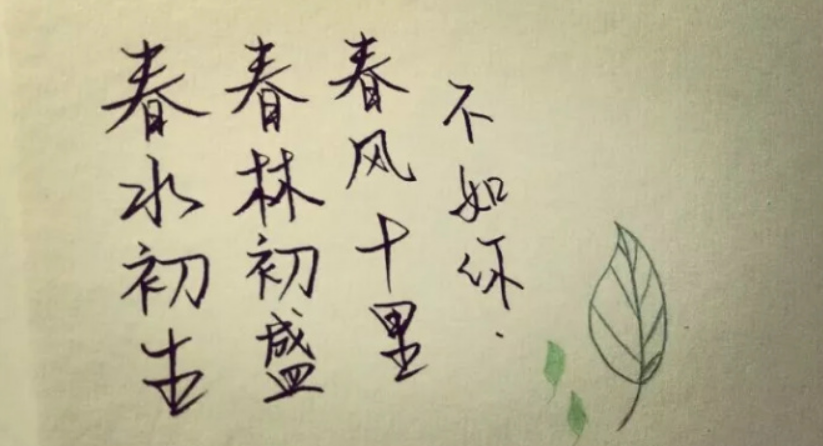 春水初生
春林初盛
春风十里
不如你.